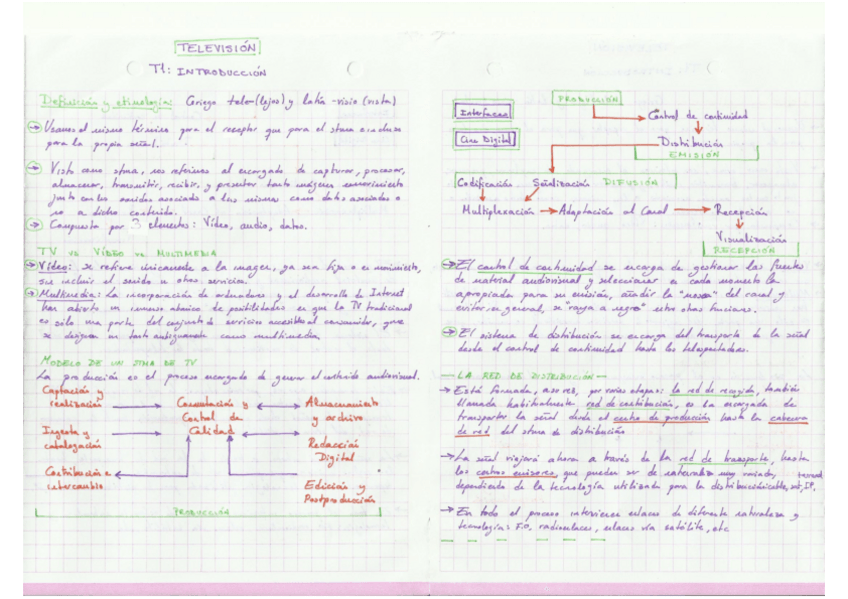 TELEVISIÓN
T1: INTRODUCCIÓN
Definición y etimología: Griego tele-(lejos) y latín -visio (vista)
Usamos el mismo término para el receptor que para el stma e incluso
para la propia señal.
Visto como stma, nos referimos al encargado de capturar, procesar,
almacenar, transmitir, recibir, y presentar tanto imágenes en movimiento
junto con los sonidos asociados a las mismas como datos asociados o
no a dicho contenido.
Compuesta por 3 elementos: Vídeo, audio, datos.
TV vs VÍDEO vs MULTIMEDIA
Vídeo: se refiere únicamente a la imagen, ya sea fija o en movimiento,
sin incluir el sonido u otros servicios.
Multimedia: La incorporación de ordenadores y el desarrollo de Internet
han abierto un inmenso abanico de posibilidades en que la TV tradicional
es sólo una parte del conjunto de servicios accesibles al consumidor, que
se designa un tanto ambiguamente como multimedia.
MODELO DE UN STMA DE TV
La producción es el proceso encargado de generar el contenido audiovisual.
Captación y
realización
Conmutación y
Control de
Calidad
Almacenamiento
y archivo
Ingesta y
catalogación
Redacción
Digital
Contribución e
intercambio
Edición y
Postproducción
PRODUCCIÓN
Interfaces
Cine Digital
PRODUCCIÓN
Control de continuidad
Distribución
EMISIÓN
Codificación Señalización DIFUSIÓN
Multiplexación Adaptación al Canal Recepción
Visualización
RECEPCIÓN
El control de continuidad se encarga de gestionar las fuentes
de material audiovisual y seleccionar en cada momento la
apropiada para su emisión, añadir la "mosca" del canal y
evitar, en general, se "vaya a negro" entre otras funciones.
El sistema de distribución se encarga del transporte de la señal
desde el control de continuidad hasta los telespectadores.
LA RED DE DISTRIBUCIÓN
Está formada, a su vez, por varias etapas: la red de recogida, también
llamada habitualmente red de contribución, es la encargada de
transportar la señal desde el centro de producción hasta la cabecera
de red del stma de distribución
La señal viajará ahora a través de la red de transporte, hasta
los centros emisores, que pueden ser de naturaleza muy variada,
dependiendo de la tecnología utilizada para la distribución: cable, sat, IP.
En todo el proceso intervienen enlaces de diferente naturaleza y
tecnología: F.O, radioenlaces, enlaces vía satélite, etc